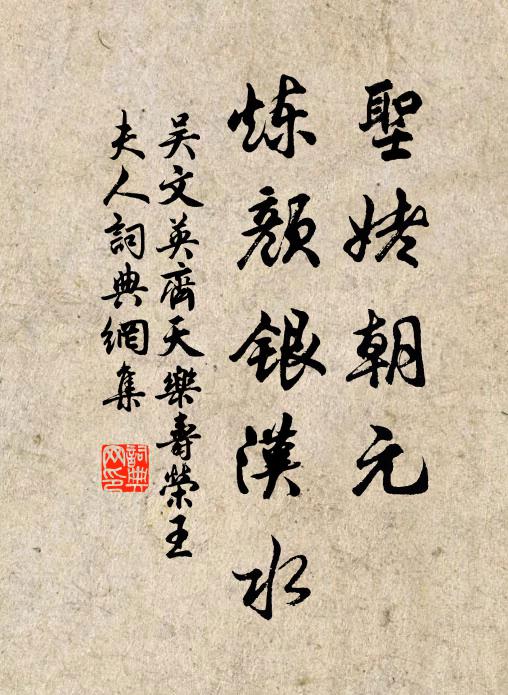 聖姥朝元
炼顏銀漢水
吴文英齊天樂壽榮王
夫人詞典網集
詞典网印